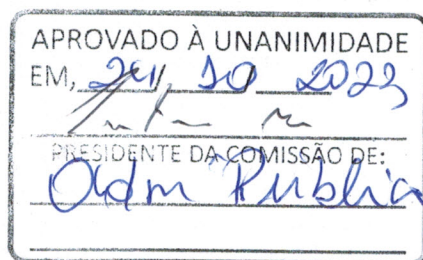 APROVADO À UNANIMIDADE
EM, 24, 10 2023
PRESIDENTE DA COMISSÃO DE:
Adm Pública